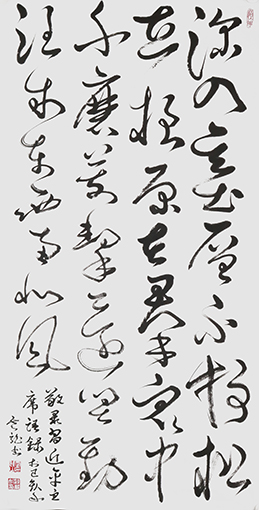 深入基层不放松
立根原在群众中
千磨万击还坚劲
任尔东西南北风
敬录習近平主
席語錄 於己亥
龍書